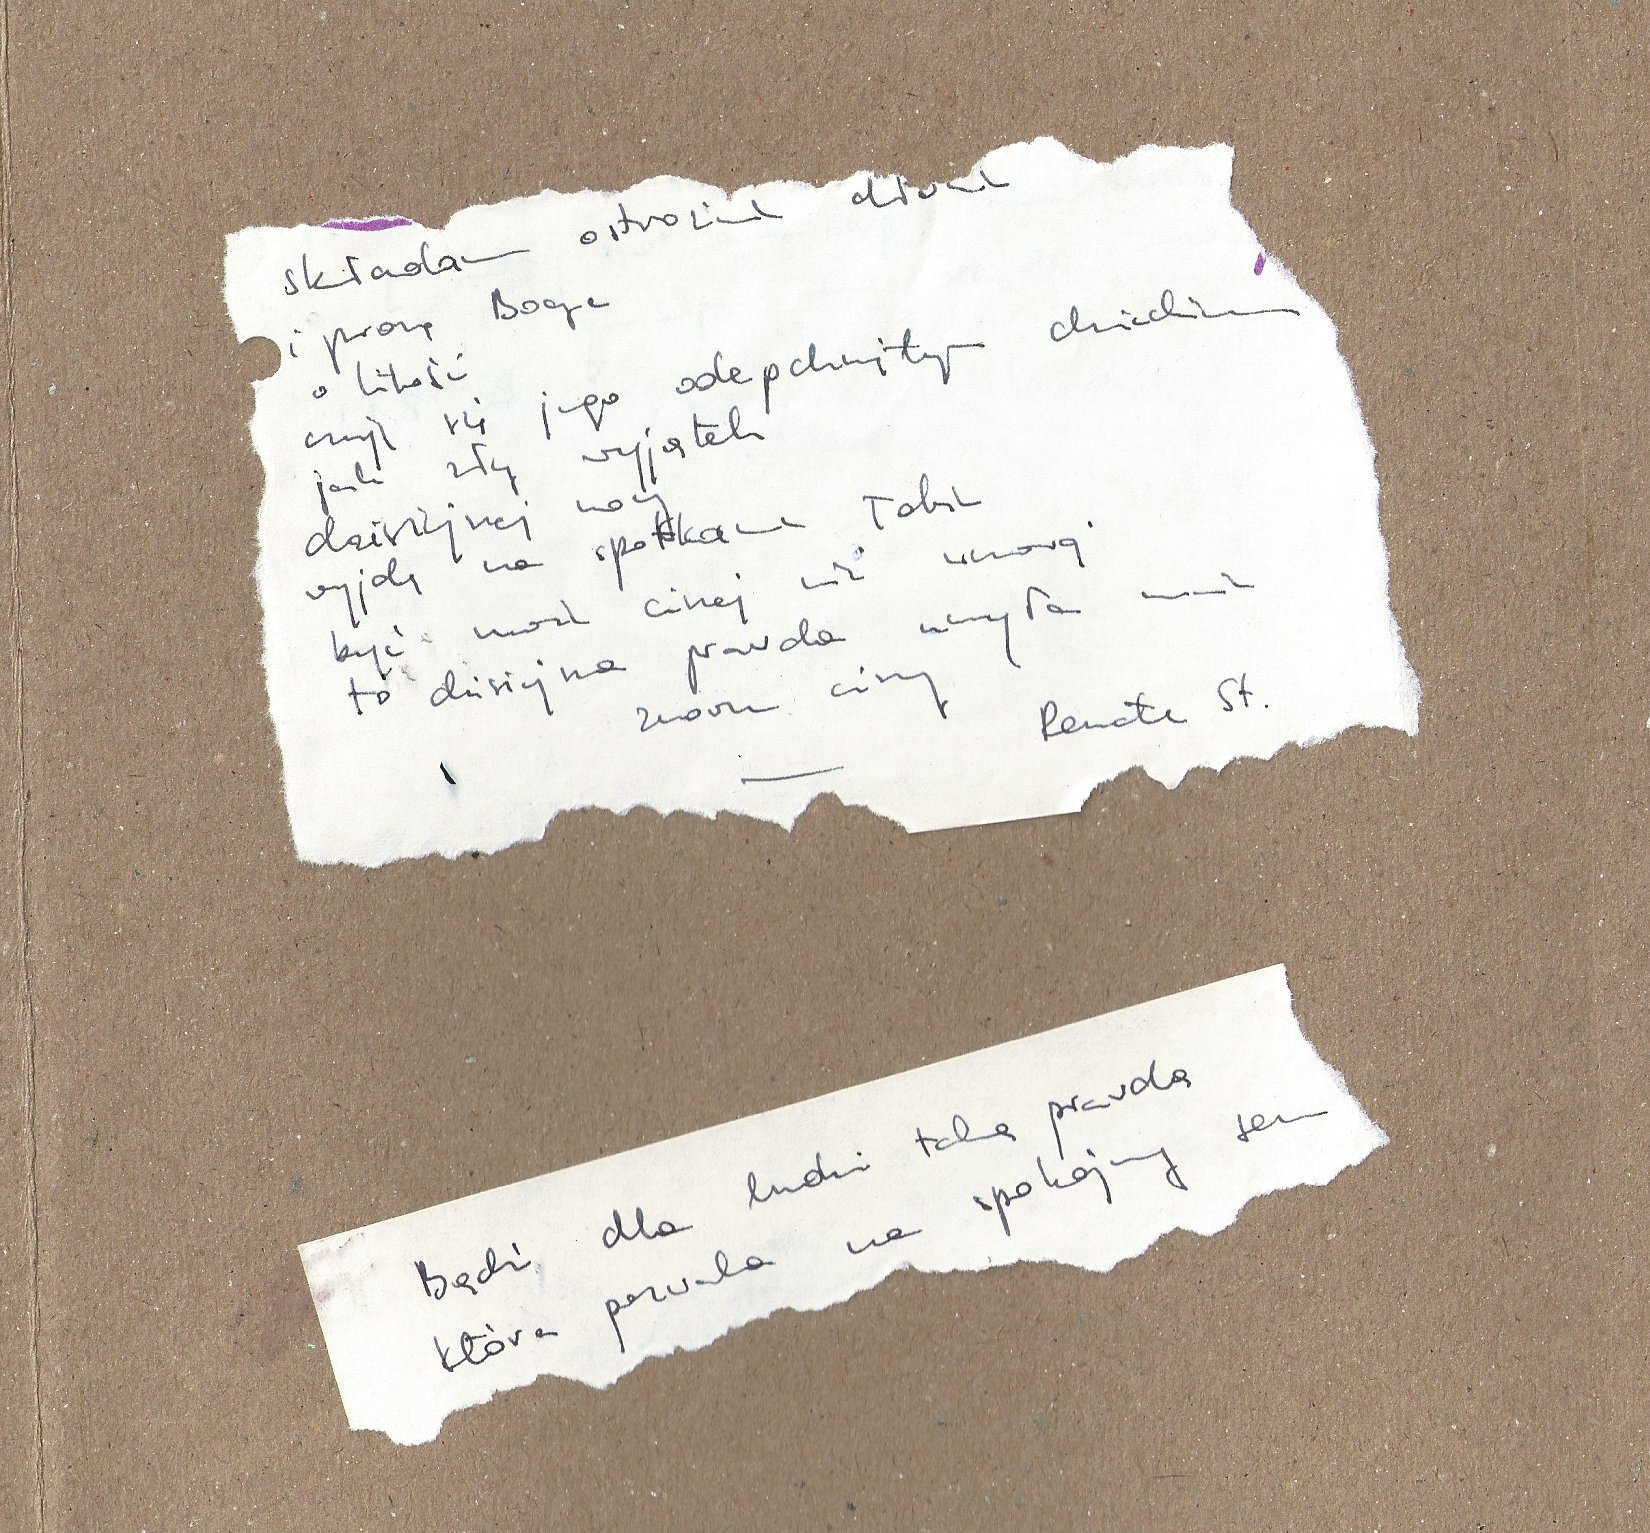 składam ostrożnie dłonie
i proszę Boga
o litość
czuję się jego odepchniętym dzieckiem
jak zły wyjątek
dzisiejszej nocy
wyjdę na spotkanie Tobie
być może ciszej niż wczoraj
to dzisiejsza prawda uczyła mnie
znowu ciszy
Renata St.
Bądź dla ludzi taką prawdą
która pozwala na spokojny sen